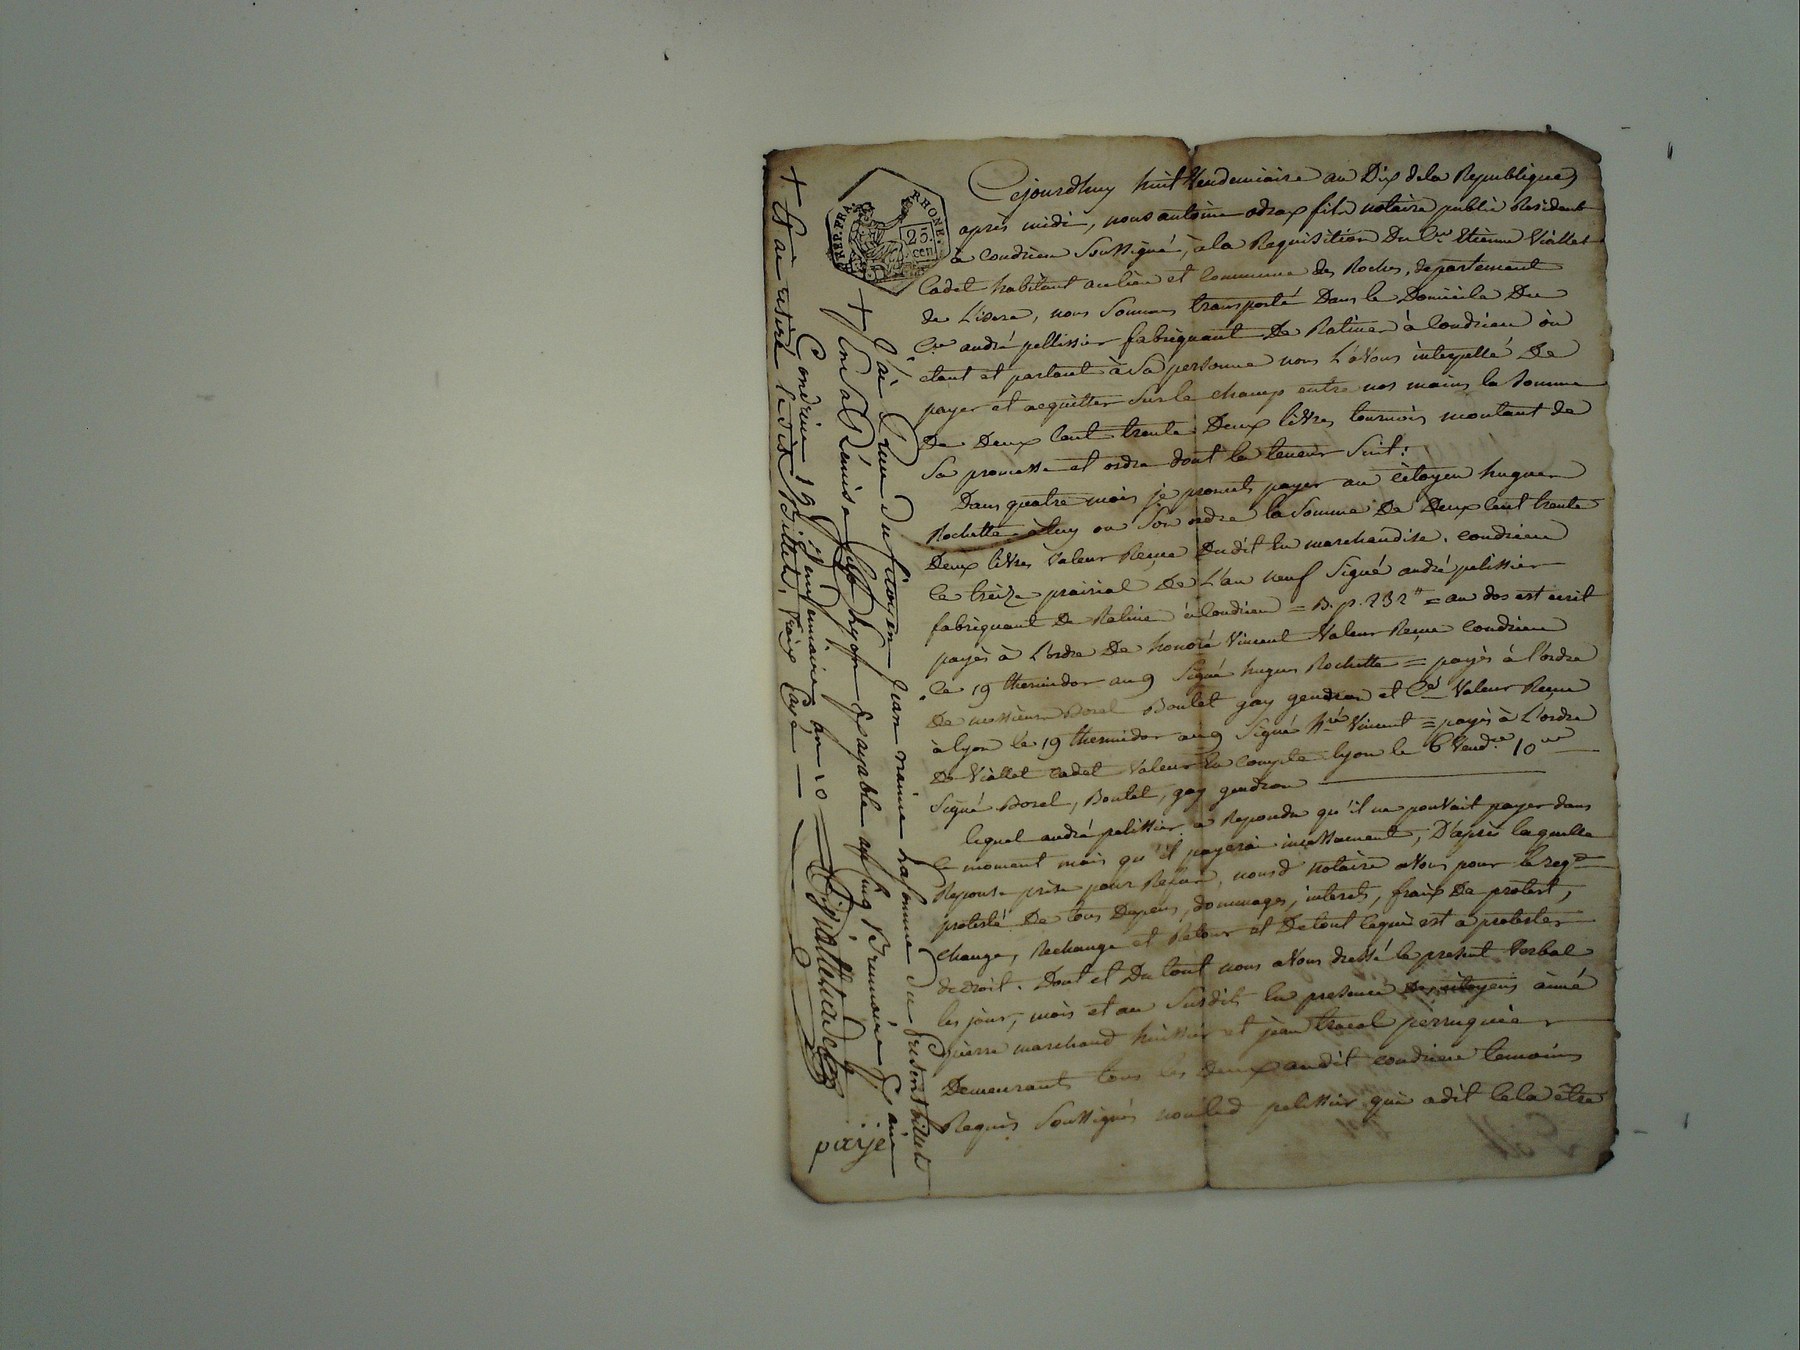 Cejourdhuy huit Vendemiaire an Dix dela Republique
après midi, nous antoine odrax fils notaire public Résident
à Condrieu Soussigné, à la Requisition Du Cen Etienne Viallet
Cadet habitant aulieu et Commune des Roches, departement
de Lisere, nous Sommes transporté Dans le Domicile Du
Cen andré pellissier fabriquant De Ratines à Condrieu où
etant et parlant à Sa personne nous L'avons interpellé De
payer et acquitter Sur le champ entre nos mains la Somme
De Deux Cent trente Deux livres tournois montant de
Sa promesse et ordre dont la teneur Suit :
Dans quatre mois je promets payer au Citoyen hugues
Rochette à luy ou Son ordre la Somme De Deux Cent trente
Deux livres valeur Reçue Dudit En marchandise. Condrieu
le treize prairial De L'an neuf Signé andré pelissier
fabriquant De Ratine à Condrieu = B. p. 232 ₶ = au dos est écrit
payés à L'ordre De honoré Vincent Valeur Reçue Condrieu
le 19 thermidor an 9 Signé hugues Rochette = payés à l'ordre
De messieurs Borel Boulet gay gendron et Cie Valeur Reçue
à lyon le 19 thermidor an 9 Signé hré Vincent = payés à L'ordre
De Viallet Cadet Valeur En Compte lyon le 6 Vendre 10
Signé Borel, Boulet, gay gendron
lequel andré pelissier a Repondu qu'il ne pouvait payer dans
le moment mais qu'il payerai incessamment, D'après laquelle
Reponse prise pour Refus, nousd notaire avons pour le reqt
protesté De tous Depens, dommages, interets, fraix De protest,
change, Rechange et Retour et De tout cequi est à protester
de droit. Dont et Du tout nous avons dressé le present Verbal
les jour, mois et an Susdits En presence Des citoyens aimé
pierre marchand huissier et jean perruquier
Demeurants tous les Deux audit Condrieu temoins
Requis Soussignés nonled pelissier qui a dit Cela être
RHONE.
REP. FRA.
25.
cen
J'ai Reçue du Citoyen Jean La Somme du Présent billet
+ En Sa Remise Sur Lyon payable au Cinq Brumaire J'ai
payé
+ & ai retiré le dit Billet, fraix Payé
Condrieu 19 Vendemiaire an 10 Viallet Cadet